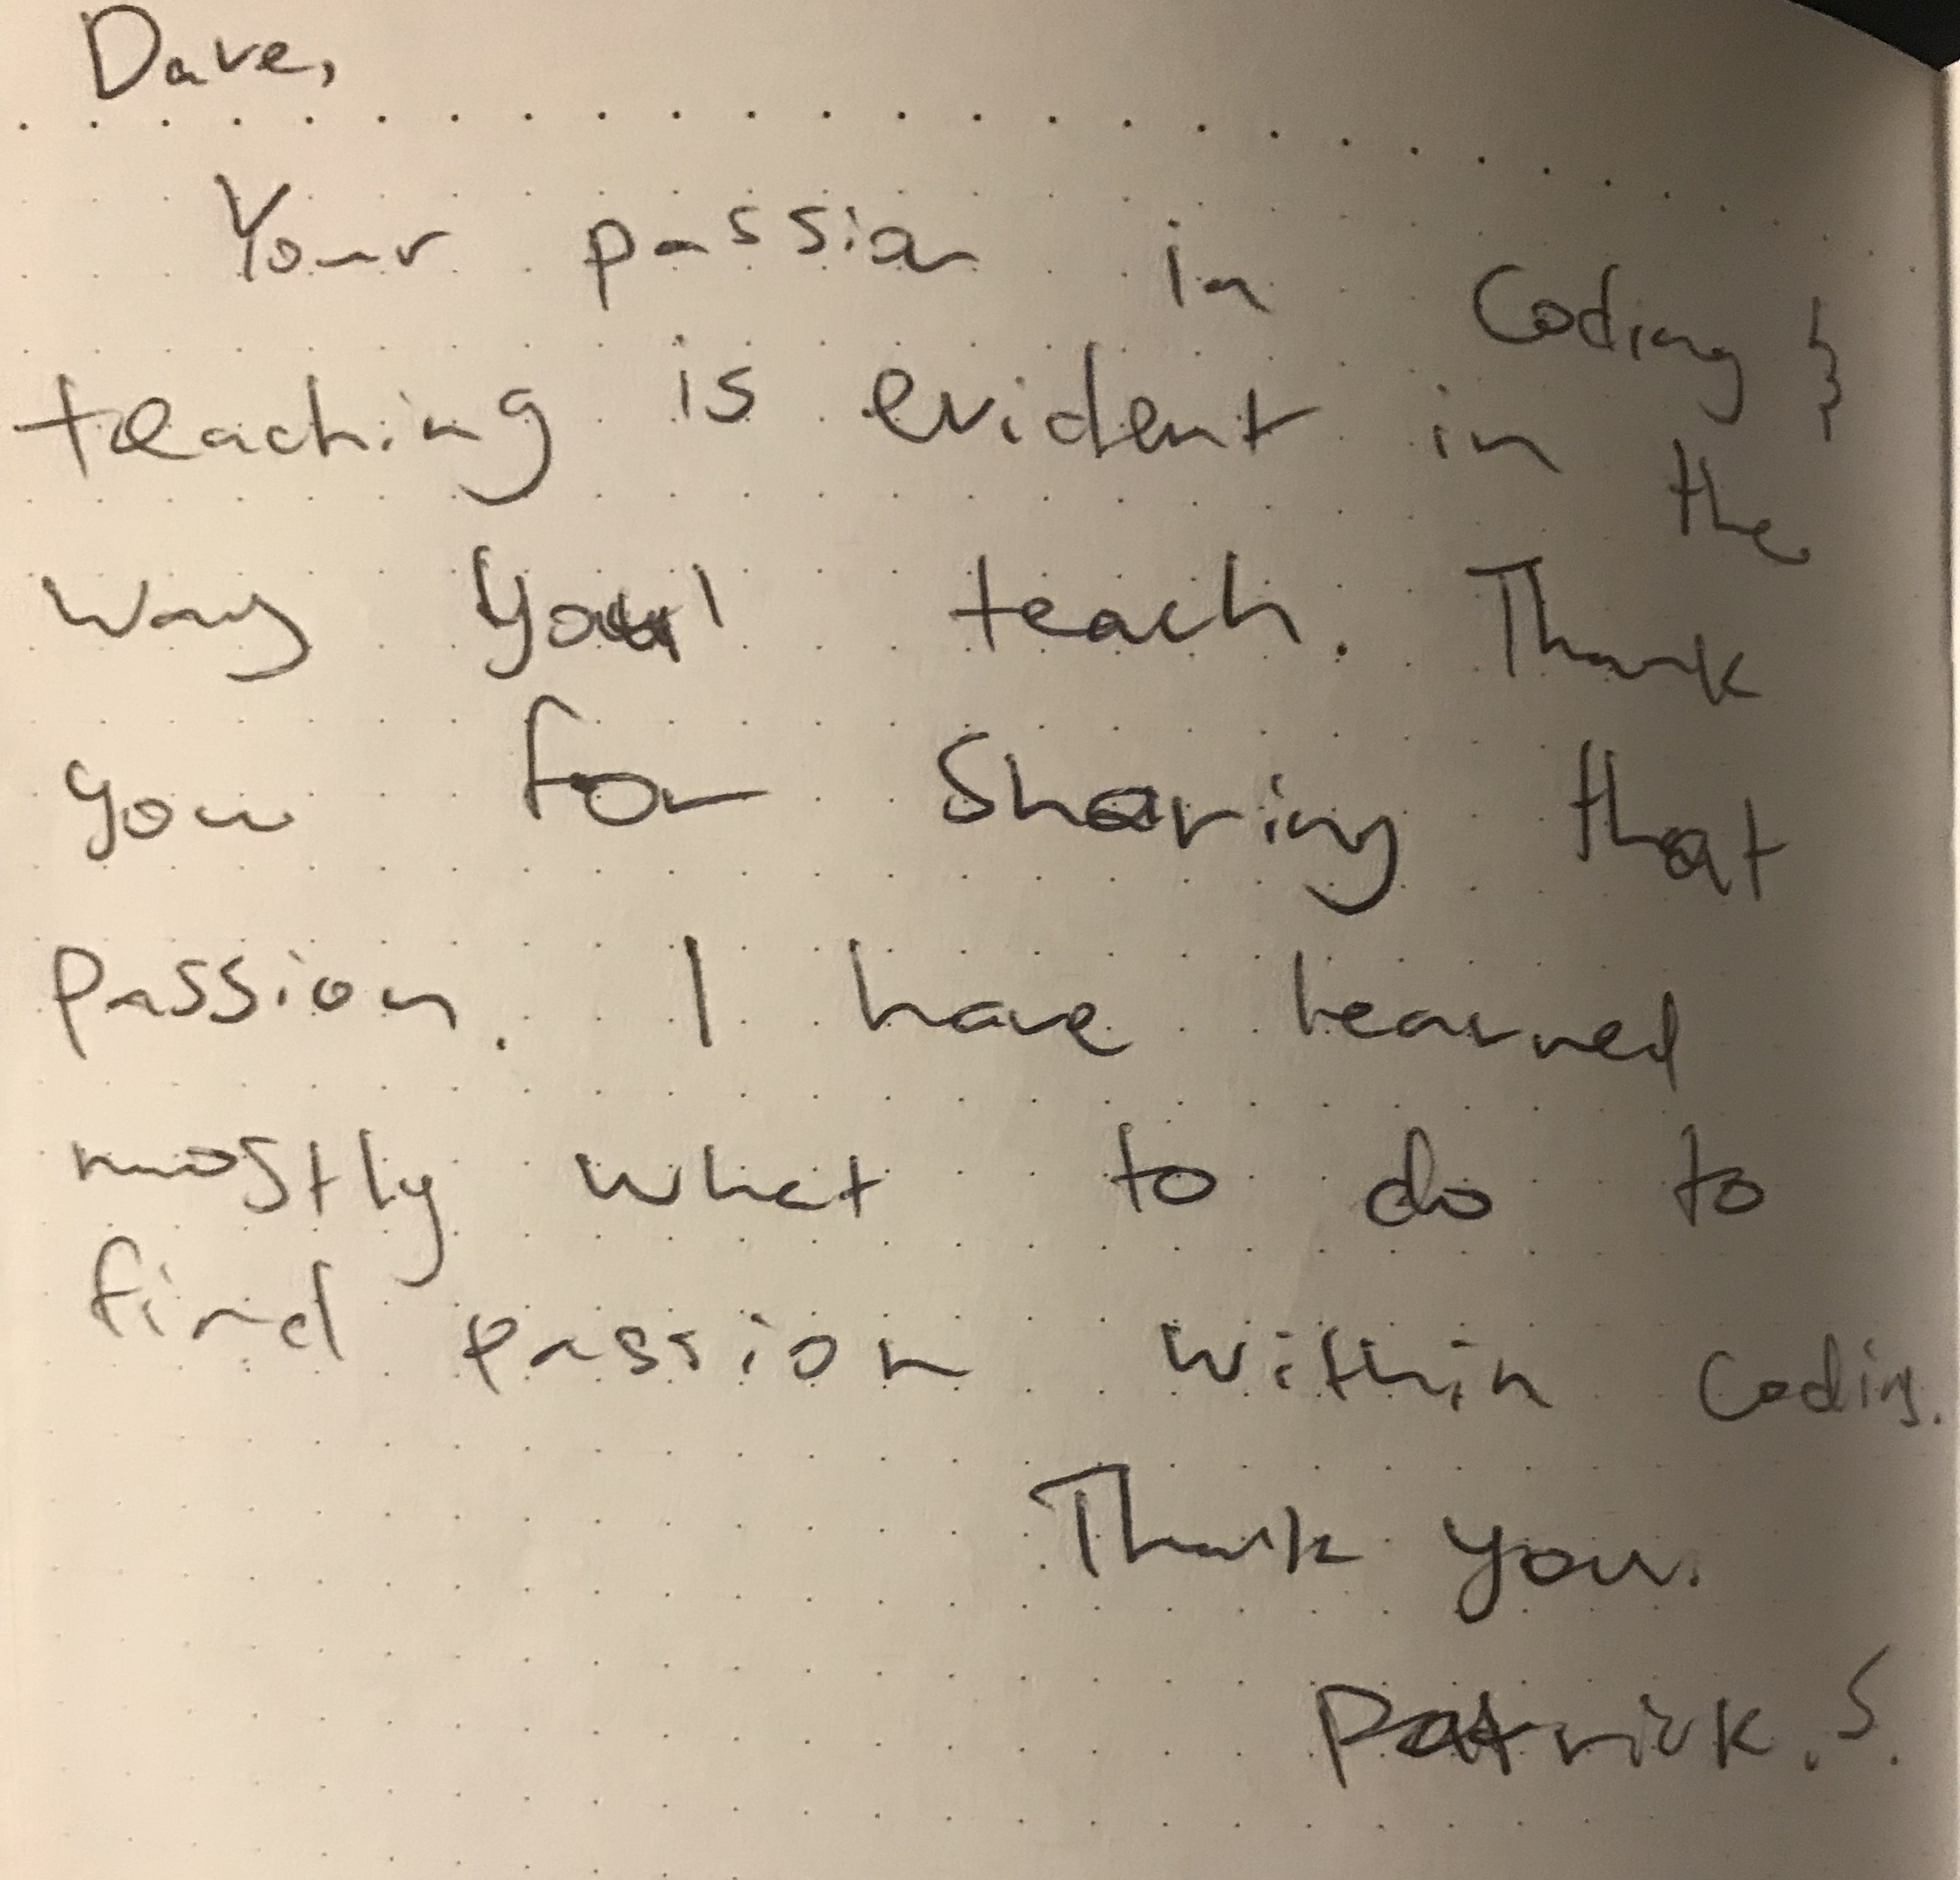 Dave,
Your passion in Coding &
teaching is evident in the
way you teach. Thank
you for Sharing that
passion. I have learned
mostly what to do to
find passion within coding.
Thank you.
Patrick. S.